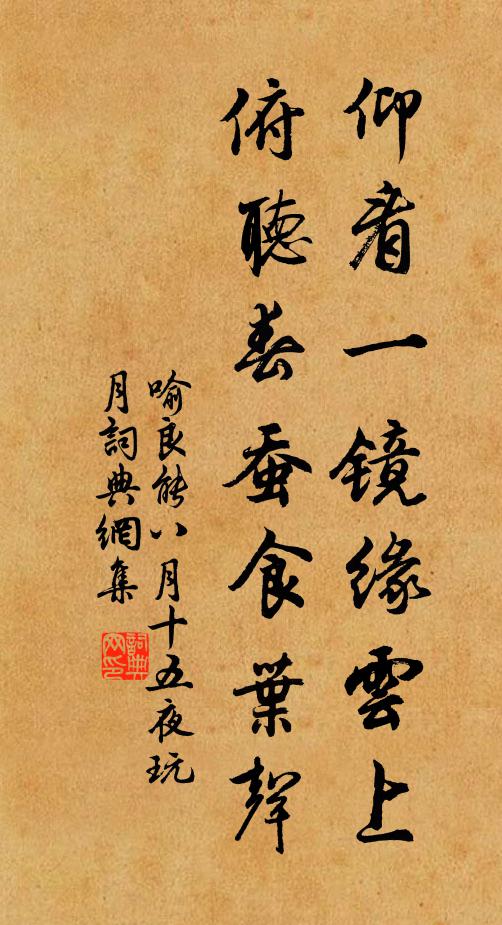 仰看一镜緣雲上
俯聽春蚕食葉聲
喻良能八月十五夜玩
月詞典網集
詞典网印